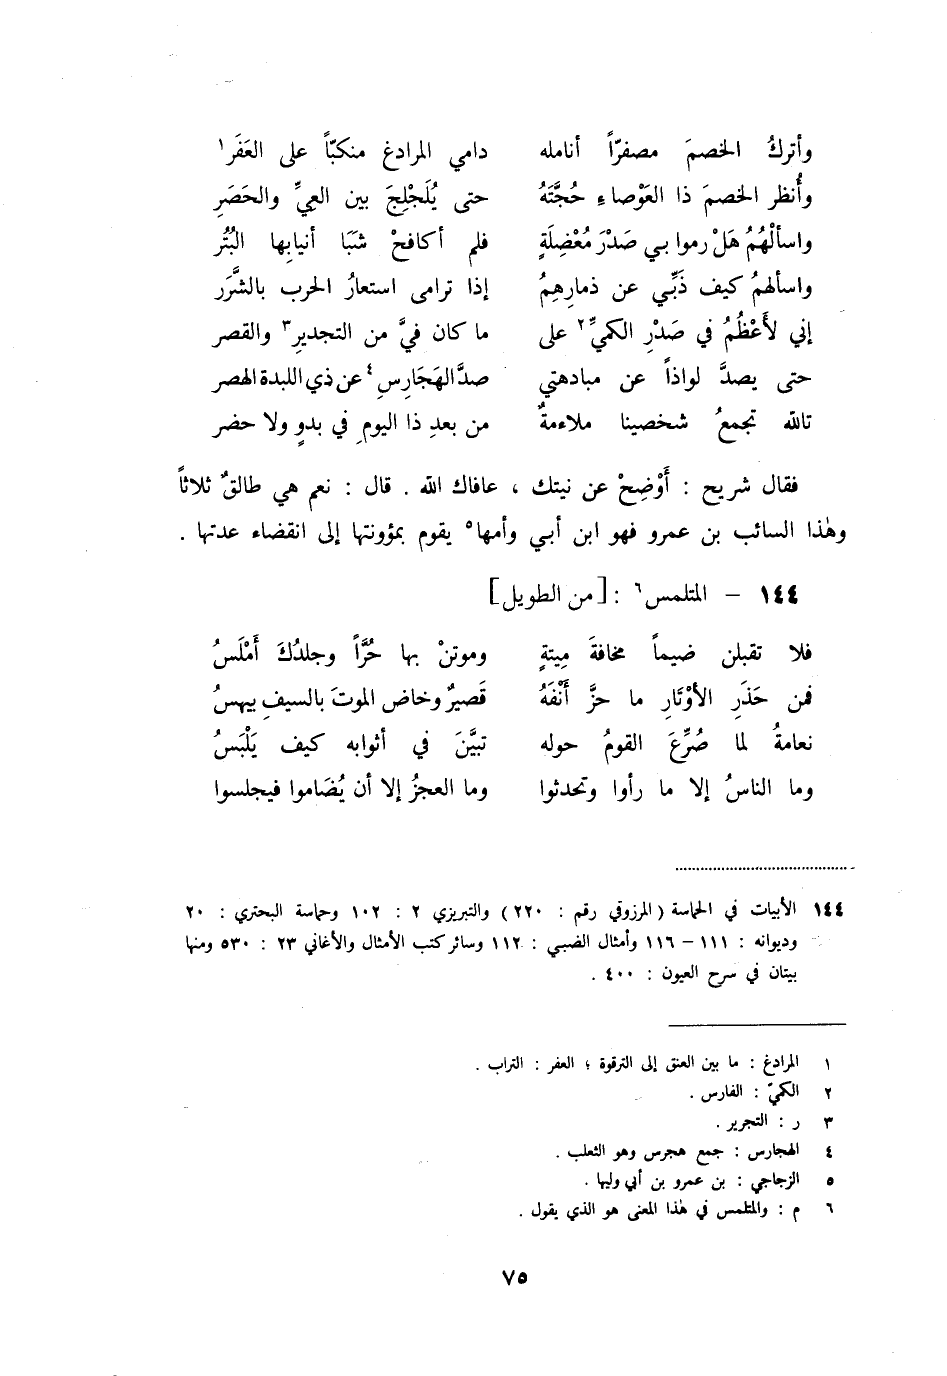 وأتركُ الخصمَ مصفرّاً أنامله دامي المرادغ منكبّاً على العَفَر١
وأُنظر الخصمَ ذا العَوْصاءِ حُجَّتَهُ حتى يُلَجْلِجَ بين العِيِّ والحَصَرِ
واسألْهُمُ هَلْ رموا بي صَدْرَ مُعْضِلَةٍ فلم أكافحْ شَبَا أنيابِها البُتُر
واسألهمُ كيف ذَبِّي عن ذمارِهِمُ إذا ترامى استعارُ الحرب بالشَّرَر
إني لأَعْظُمُ في صَدْرِ الكميِّ٢ على ما كان فيَّ من التجديرِ٣ والقصر
حتى يصدَّ لواذاً عن مبادهتي صدَّ الهَجَارِسِ٤ عن ذي اللبدة الهصر
تالله تجمعُ شخصينا ملاءمةٌ من بعدِ ذا اليومِ في بدوٍ ولا حضر
فقال شريح : أَوْضِحْ عن نيتك ، عافاك الله . قال : نعم هي طالقٌ ثلاثاً
وهٰذا السائب بن عمرو فهو ابن أبي وأمها٥ يقوم بمؤونتها إلى انقضاء عدتها .
١٤٤ – المتلمس٦ : [من الطويل]
فلا تقبلن ضيماً مخافةَ مِيتةٍ وموتنْ بها حُرَّاً وجلدُكَ أَمْلَسُ
فمن حَذَرِ الأوْتَارِ ما حزَّ أَنْفَهُ قَصيرٌ وخاض الموتَ بالسيفِ بيهسُ
نعامةُ لما صُرِّعَ القومُ حوله تبيَّنَ في أثوابه كيف يَلْبَسُ
وما الناسُ إلا ما رأوا وتحدثوا وما العجزُ إلا أن يُضَاموا فيجلسوا
١٤٤ الأبيات في الحماسة (المرزوقي رقم : ٢٢٠) والتبريزي ٢ : ١٠٢ وحماسة البحتري : ٢٠
وديوانه : ١١١ – ١١٦ وأمثال الضبي : ١١٢ وسائر كتب الأمثال والأغاني ٢٣ : ٥٣٠ ومنها
بيتان في سرح العيون : ٤٠٠ .
١ المرادغ : ما بين العنق إلى الترقوة ؛ العفر : التراب .
٢ الكميّ : الفارس .
٣ ر : التجرير .
٤ الهجارس : جمع هجرس وهو الثعلب .
٥ الزجاجي : بن عمرو بن أبي وليها .
٦ م : والمتلمس في هٰذا المعنى هو الذي يقول .
٧٥